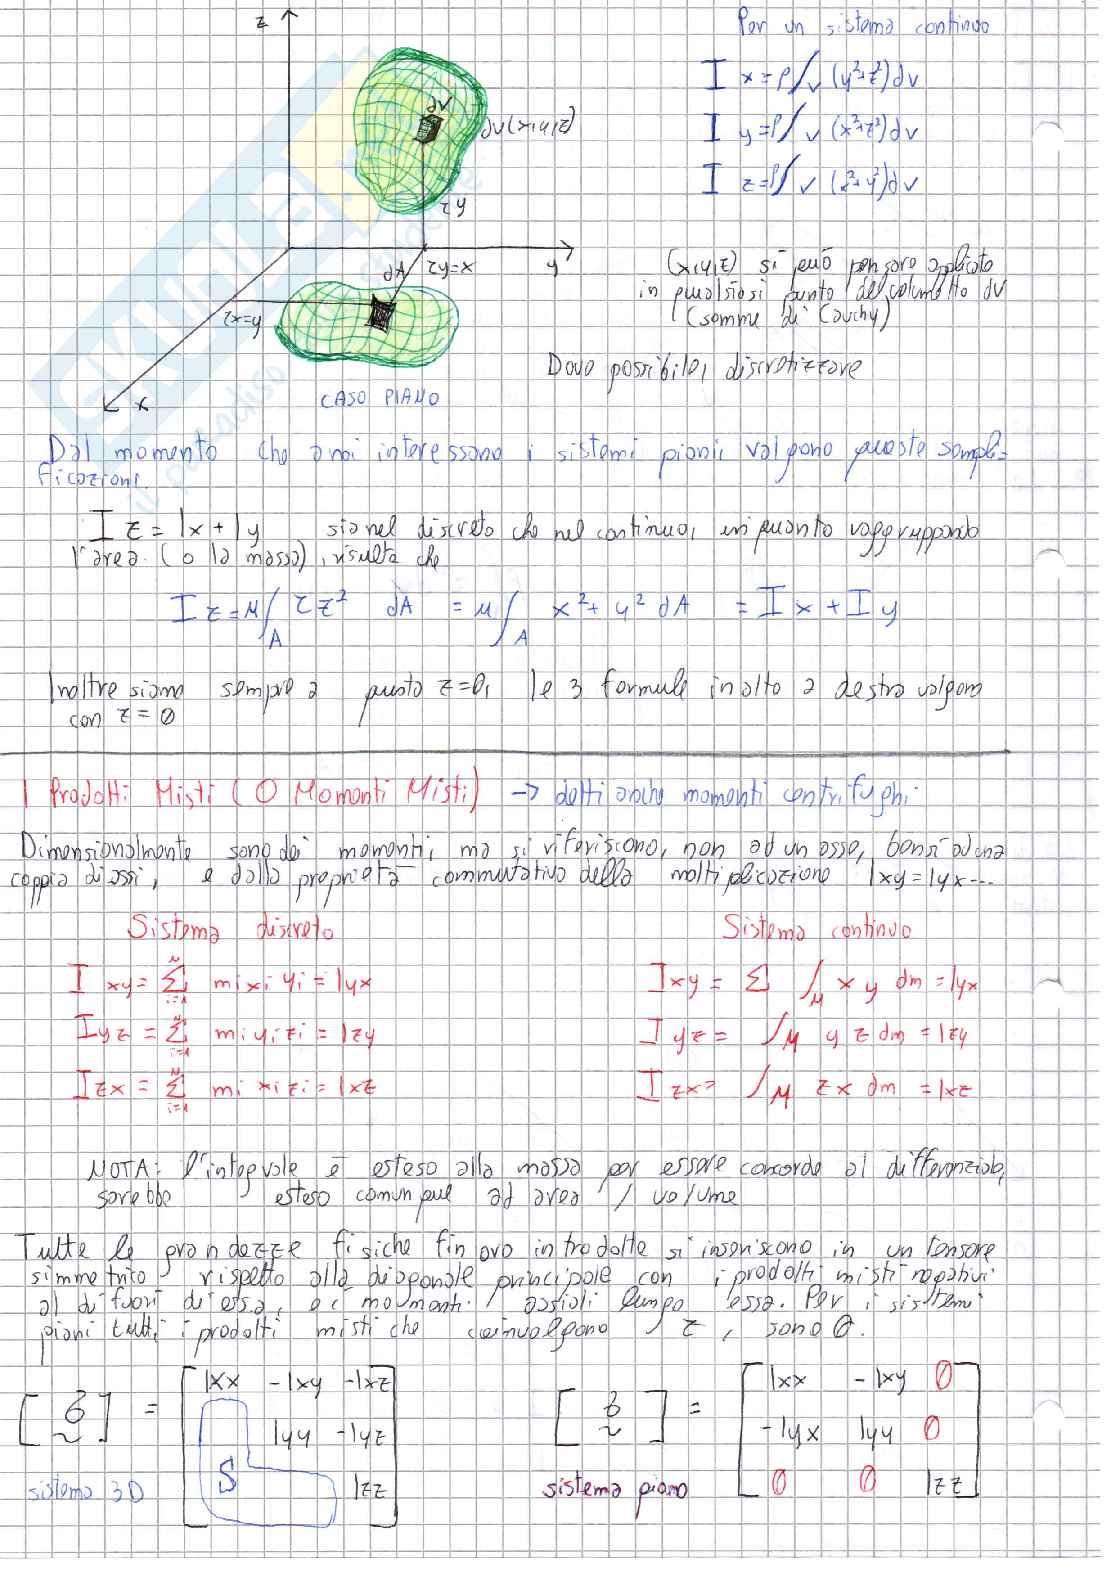 z
Per un sistema continuo
I x = ρ ∫v (y²+z²) dv
I y = ρ ∫v (x²+z²) dv
I z = ρ ∫v (x²+y²) dv
dv
dv(x,y,z)
τy
dA
τy=x
y
τx=y
x
CASO PIANO
(x,y,z) si può pensare applicato
in qualsiasi punto del volumetto dv
(somme di Cauchy)
Dove possibile, discretizzare
Dal momento che a noi interessano i sistemi piani, valgono queste sempli-
ficazioni.
I z = Ix + Iy sia nel discreto che nel continuo, in quanto raggruppando
l'area (o la massa), risulta che
I z = μ ∫A τz² dA = μ ∫A x² + y² dA = I x + I y
Inoltre siamo sempre a punto z=0, le 3 formule in alto a destra valgono
con z = 0
I Prodotti Misti (O Momenti Misti) -> detti anche momenti centrifughi.
Dimensionalmente sono dei momenti, ma si riferiscono, non ad un asse, bensì ad una
coppia di assi, e dalla proprietà commutativa della moltiplicazione Ixy = Iyx...
Sistema discreto
Sistema continuo
I xy = Σ i=1 N mi xi yi = Iyx
Ixy = Σ ∫M x y dm = Iyx
Iyz = Σ i=1 N mi yi zi = Izy
I yz = ∫M y z dm = Izy
Izx = Σ i=1 N mi xi zi = Ixz
I zx = ∫M zx dm = Ixz
NOTA: l'integrale è esteso alla massa per essere concorde al differenziale,
sarebbe esteso comunque ad area / volume
Tutte le grandezze fisiche fin ora introdotte si inseriscono in un tensore
simmetrico rispetto alla diagonale principale con i prodotti misti negativi
al di fuori di essa, e i momenti assiali lungo essa. Per i sistemi
piani tutti i prodotti misti che coinvolgono z, sono 0.
Ixx -Ixy -Ixz
Iyy -Iyz
S
Izz
sistema 3D
Ixx -Ixy 0
-Iyx Iyy 0
0 0 Izz
sistema piano